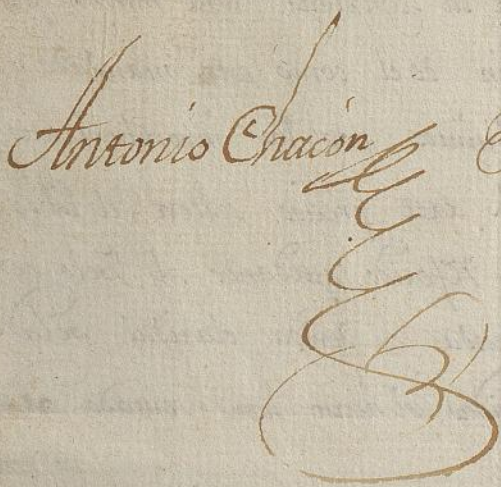 Antonio Chacón